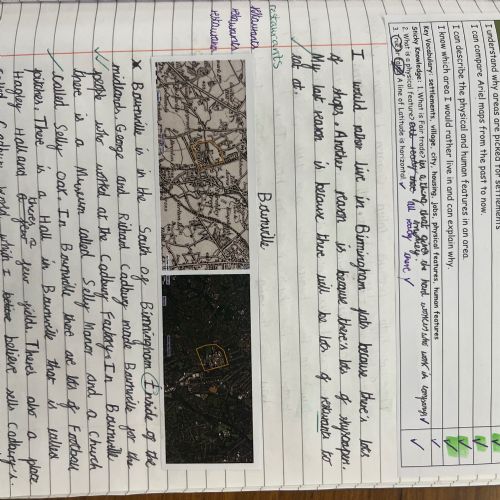 I understand why areas are picked for settlements
I can compare Ariel maps from the past to now.
I can describe the physical and human features in an area.
I know which area I would rather live in and can explain why.
Key Vocabulary: settlements, village, city, housing, jobs, physical features, human features
Sticky Knowledge: 1. What is Fairtrade? is a thing that gives the hard workers who work in companys
2. What is a physical feature?
3. True or False A line of Latitude is horizontal.
I would rather live in Birmingham
because there's lots
of shops. Another reason is because there's lots of skyscrapers.
My last reason is because there will be lots of restuwants to
eat at.
restaurants
restaurants
restaurants
restaurants
Bournville
Bournville is in the South of Birmingham Inside of the
midlands. George and Richard Cadbury made Bournville for the
people who worked at the Cadbury Factory. In Bournville
there is a Museum called Selly Manor and a church
called Selly Oak. In Bournville there are lots of Football
pitches. There is a Hall in Bournville that is called
Hagley Hall and there's a few fields. There's also a place
called Cadbury World which I believe sells Cadbury's